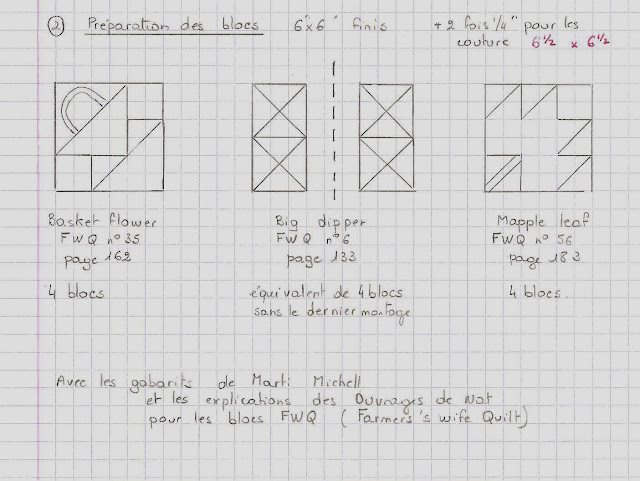 ② Préparation des blocs 6"x6" finis + 2 fois 1/4" pour les
couture 6 1/2 x 6 1/2
Basket flower
FWQ n°35
page 162
4 blocs
Big dipper
FWQ n°6
page 133
équivalent de 4 blocs
sans le dernier montage
Mapple leaf
FWQ n° 56
page 183
4 blocs.
Avec les gabarits de Marti Michell
et les explications des Ouvrages de Nat
pour les blocs FWQ ( Farmers's wife Quilt)